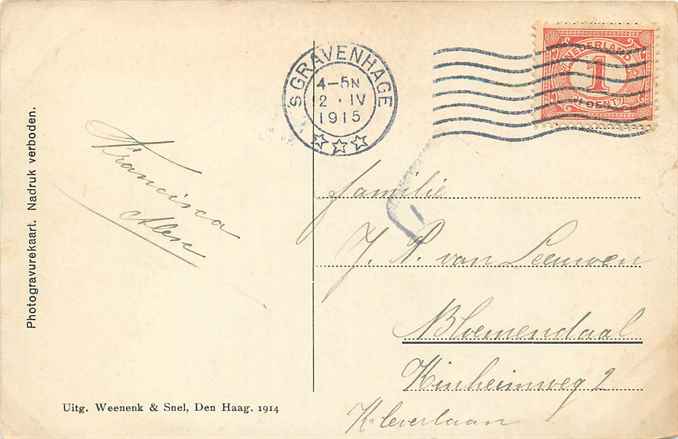 Photogravurekaart. Nadruk verboden.
Francisca
'S GRAVENHAGE
4-5N
2 · IV
1915
NEDERLAND
1
CENT
Familie
J. P. van Leeuwen
Bloemendaal
Kinheimweg 2
Kleverlaan
Uitg. Weenenk & Snel, Den Haag. 1914